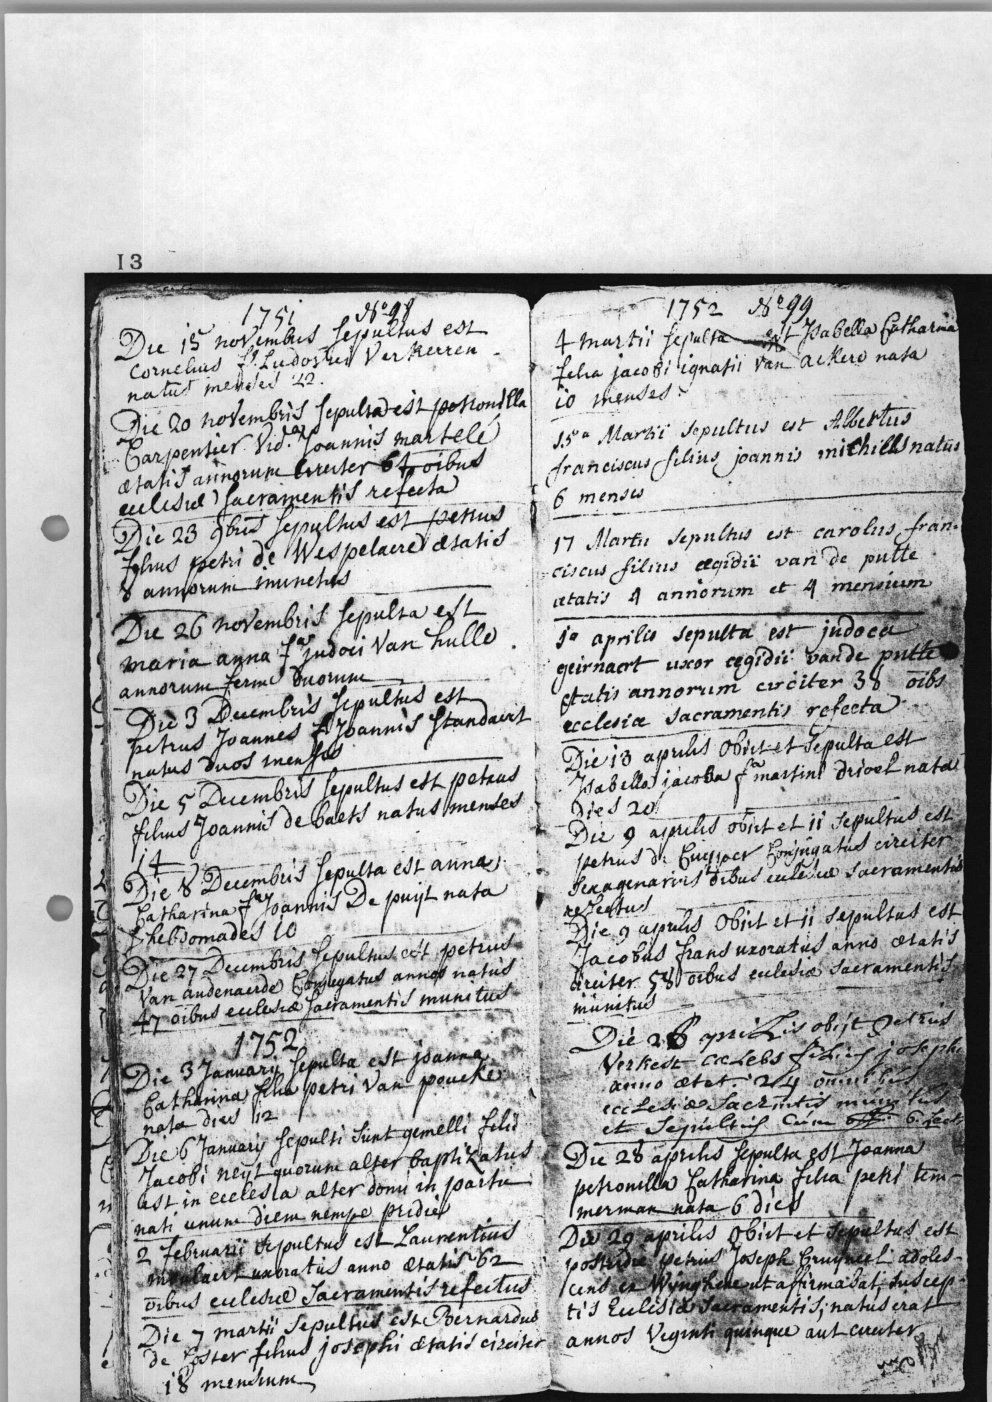 13
1751 No 98
Die 15 novembris sepultus est
Cornelius fs Ludovici Verkerren
natus menses 22.
Die 20 novembris sepulta est petronilla
Carpentier vid.a Joannis martele
ætatis annorum circiter 67 oibus
ecclesiæ sacramentis refecta
Die 23 9bris sepultus est petrus
filius petri de Wespelaere ætatis
8 annorum munitus
Die 26 novembris sepulta est
maria anna fa judoci Van hulle
annorum ferme duorum
Die 3 Decembris sepultus est
petrus Joannes fs Joannis Standaert
natus duos menses
Die 5 Decembris sepultus est petrus
filius Joannis de baets natus menses
14
Die 8 Decembris sepulta est anna
Catharina fa Joannis De puijt nata
hebdomades 10
Die 27 Decembris sepultus est petrus
Van audenaerde Conjugatus annos natus
47 oibus ecclesiæ sacramentis munitus
1752
Die 3 Januarij sepulta est joanna
Catharina filia petri Van poucke
nata dies 12
Die 6 Januarij sepulti sunt gemelli filii
Jacobi neyt quorum alter baptizatus
est in ecclesia alter domi in partu
nati unum diem nempe pridie
2 februarii sepultus est Laurentius
uxoratus anno ætatis 62
oibus ecclesiæ sacramentis refectus
Die 7 martii sepultus est Bernardus
de Coster filius josephi ætatis circiter
18 mensium
1752 No 99
4 martii sepulta est Isabella Catharina
felia jacobi ignatii van ackere nata
10 menses
15a Martii sepultus est Albertus
franciscus filius joannis michiels natus
6 menses
17 Martii sepultus est carolus fran-
ciscus filius ægidii van de putte
ætatis 4 annorum et 4 mensium
1a aprilis sepulta est judoca
geirnaert uxor ægidii vande putte
ætatis annorum circiter 38 oibs
ecclesiæ sacramentis refecta
Die 13 aprilis obiit et sepulta est
Isabella jacoba fa martini drivel nata
dies 20
Die 9 aprilis obiit et 11 sepultus est
petrus de Cuyper Conjugatus circiter
sexagenarius oibus ecclesiæ sacramentis
refectus
Die 9 aprilis obiit et 11 sepultus est
Jacobus frans uxoratus anno ætatis
circiter 58 oibus ecclesiæ sacramentis
munitus
Die 26 aprilis obijt Petrus
Verkest cælebs filius joseph
anno ætat. 24 omnibus
ecclesiæ Sacrmtis munitus
et Sepultus cum 6 lect
Die 28 aprilis sepulta est Joanna
petronilla Catharina filia petri tem-
merman nata 6 dies
Die 29 aprilis obiit et sepultus est
postridie petrus Joseph adoles-
cens ex Wynghene ut affirmabat, suscep-
tis Ecclesiæ sacramentis, natus erat
annos viginti quinque aut circiter